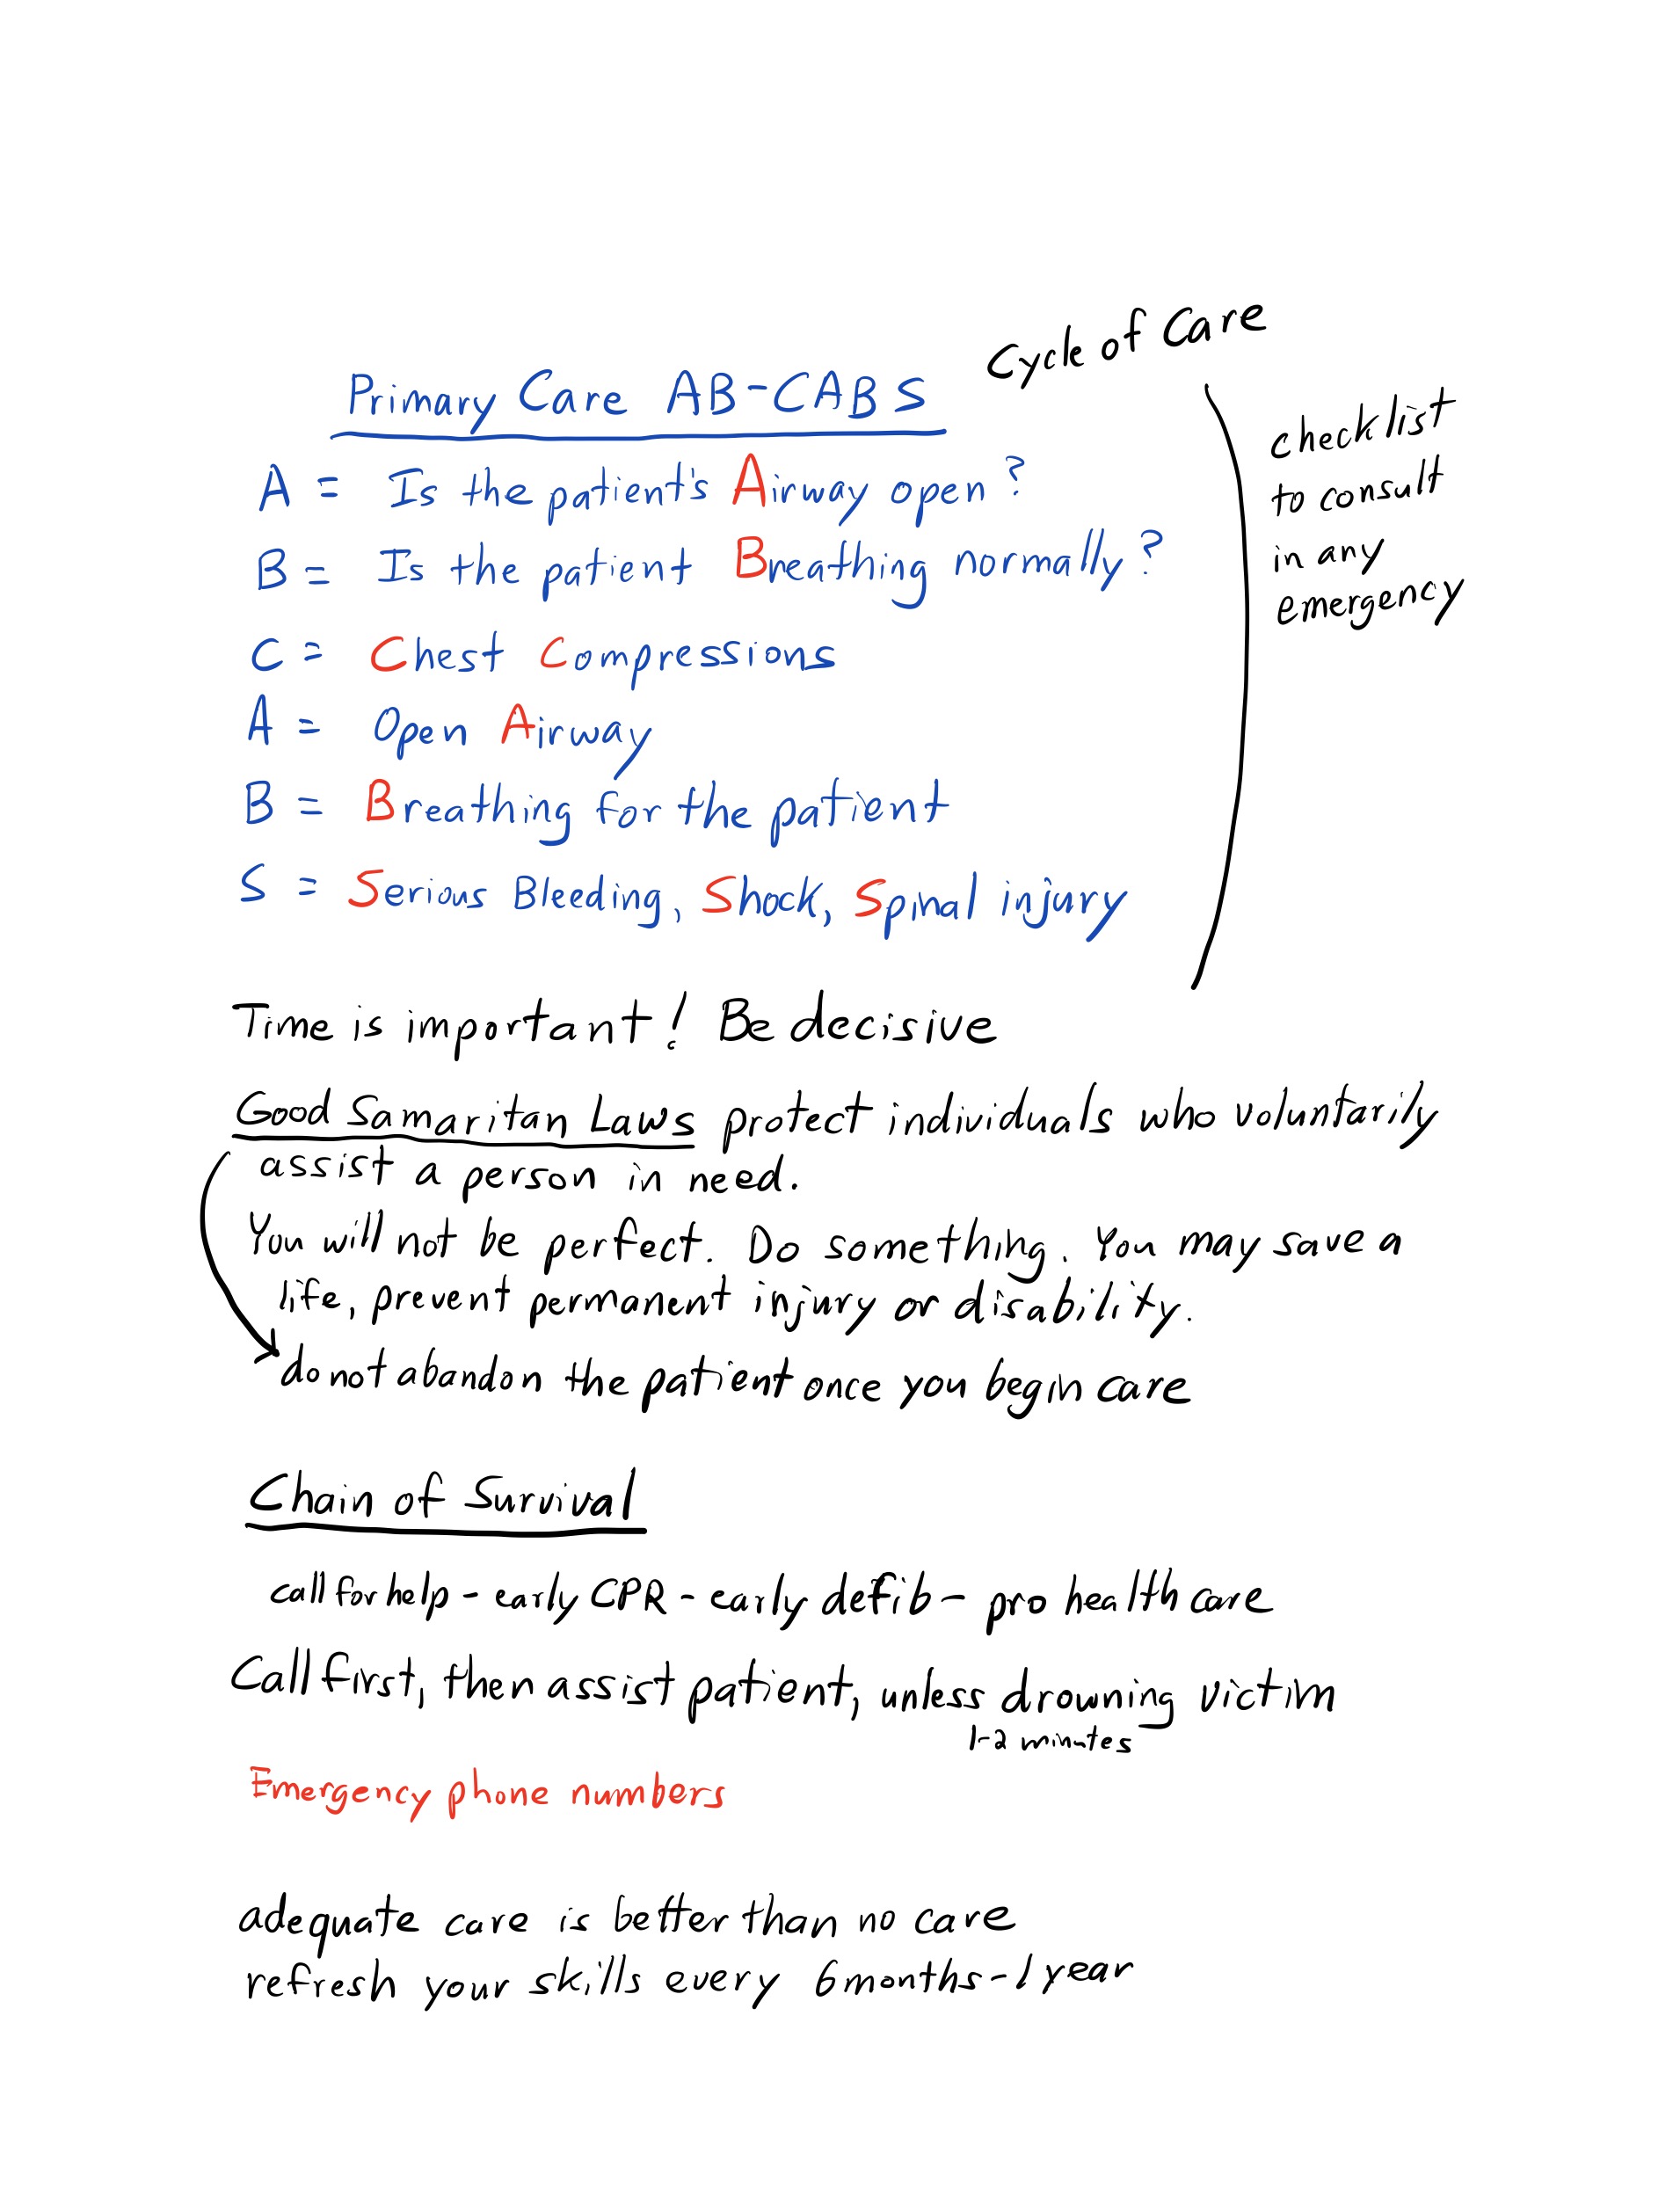 Cycle of Care
Primary Care AB-CABS
checklist
to consult
in any
emergency
A = Is the patient's Airway open?
B = Is the patient Breathing normally?
C = Chest Compressions
A = Open Airway
B = Breathing for the patient
S = Serious Bleeding, Shock, Spinal injury
Time is important! Be decisive
Good Samaritan Laws protect individuals who voluntarily
assist a person in need.
You will not be perfect. Do something. You may save a
life, prevent permanent injury or disability.
do not abandon the patient once you begin care
Chain of Survival
call for help - early CPR - early defib - pro health care
Call first, then assist patient, unless drowning victim
1-2 minutes
Emergency phone numbers
adequate care is better than no care
refresh your skills every 6 months - 1 year